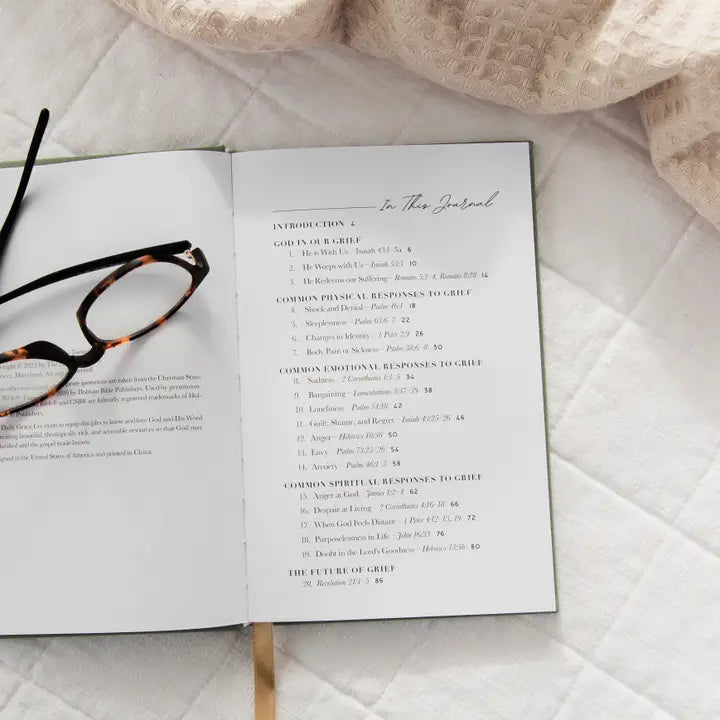 right © 2023 by The
over, Maryland. All rights reserved.
quotations are taken from the Christian Stan-
2020 by Holman Bible Publishers. Used by permission.
Bible® and CSB® are federally registered trademarks of Hol-
Publishers.
Daily Grace Co. exists to equip disciples to know and love God and His Word
creating beautiful, theologically rich, and accessible resources so that God may
and the gospel made known.
in the United States of America and printed in China.
In This Journal
INTRODUCTION 4
GOD IN OUR GRIEF
1. He is With Us – Isaiah 43:1–5a 6
2. He Weeps with Us – Isaiah 53:3 10
3. He Redeems our Suffering – Romans 5:3–4, Romans 8:28 14
COMMON PHYSICAL RESPONSES TO GRIEF
4. Shock and Denial – Psalm 46:1 18
5. Sleeplessness – Psalm 63:6–7 22
6. Changes in Identity – 1 Peter 2:9 26
7. Body Pain or Sickness – Psalm 38:6–8 30
COMMON EMOTIONAL RESPONSES TO GRIEF
8. Sadness – 2 Corinthians 1:3–5 34
9. Bargaining – Lamentations 3:37–39 38
10. Loneliness – Psalm 34:18 42
11. Guilt, Shame, and Regret – Isaiah 43:25–26 46
12. Anger – Hebrews 10:30 50
13. Envy – Psalm 73:25–26 54
14. Anxiety – Psalm 46:1–3 58
COMMON SPIRITUAL RESPONSES TO GRIEF
15. Anger at God – James 1:2–4 62
16. Despair at Living – 2 Corinthians 4:16–18 66
17. When God Feels Distant – 1 Peter 4:12–13, 19 72
18. Purposelessness in Life – John 16:33 76
19. Doubt in the Lord's Goodness – Hebrews 13:5b 80
THE FUTURE OF GRIEF
20. Revelation 21:1–5 86